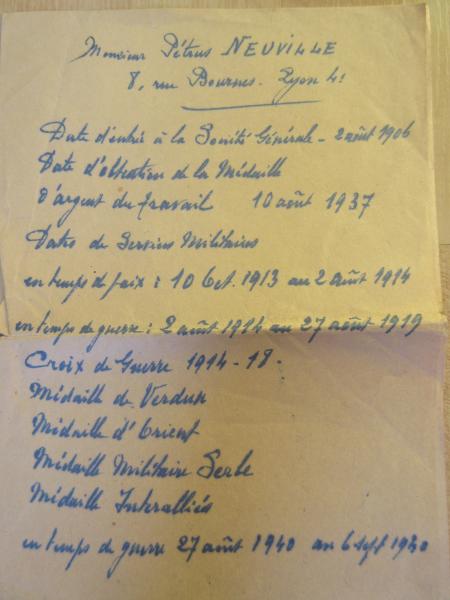 Monsieur Pétrus NEUVILLE
8, rue Bournes. Lyon 4e
Date d'entrée à la Société Générale - 2 août 1906
Date d'obtention de la Médaille
d'argent du travail 10 août 1937
Dates de Services Militaires
en temps de paix : 10 Oct. 1913 au 2 Août 1914
en temps de guerre : 2 août 1914 au 27 août 1919
Croix de Guerre 1914-18.
Médaille de Verdun
Médaille d'Orient
Médaille Militaire Serbe
Médaille Interalliés
en temps de guerre 27 août 1940 au 6 sept 1940